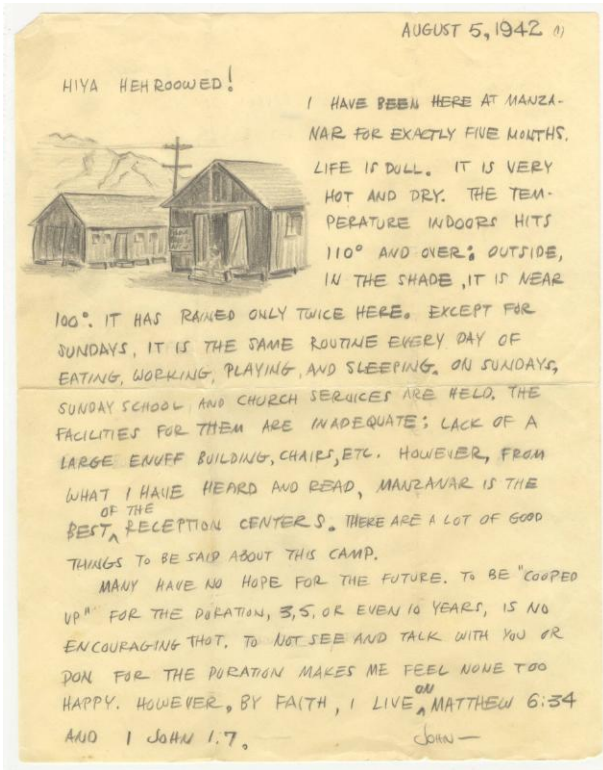 AUGUST 5, 1942 (1)
HIYA HEHROOWED!
I HAVE BEEN HERE AT MANZA-
NAR FOR EXACTLY FIVE MONTHS.
LIFE IS DULL. IT IS VERY
HOT AND DRY. THE TEM-
PERATURE INDOORS HITS
110° AND OVER; OUTSIDE,
IN THE SHADE, IT IS NEAR
100°. IT HAS RAINED ONLY TWICE HERE. EXCEPT FOR
SUNDAYS, IT IS THE SAME ROUTINE EVERY DAY OF
EATING, WORKING, PLAYING, AND SLEEPING. ON SUNDAYS,
SUNDAY SCHOOL AND CHURCH SERVICES ARE HELD. THE
FACILITIES FOR THEM ARE INADEQUATE; LACK OF A
LARGE ENUFF BUILDING, CHAIRS, ETC. HOWEVER, FROM
WHAT I HAVE HEARD AND READ, MANZANAR IS THE
BEST OF THE RECEPTION CENTERS. THERE ARE A LOT OF GOOD
THINGS TO BE SAID ABOUT THIS CAMP.
MANY HAVE NO HOPE FOR THE FUTURE. TO BE "COOPED
UP" FOR THE DURATION, 3, 5, OR EVEN 10 YEARS, IS NO
ENCOURAGING THOT. TO NOT SEE AND TALK WITH YOU OR
DON FOR THE DURATION MAKES ME FEEL NONE TOO
HAPPY. HOWEVER, BY FAITH, I LIVE ON MATTHEW 6:34
AND 1 JOHN 1:7.
JOHN—